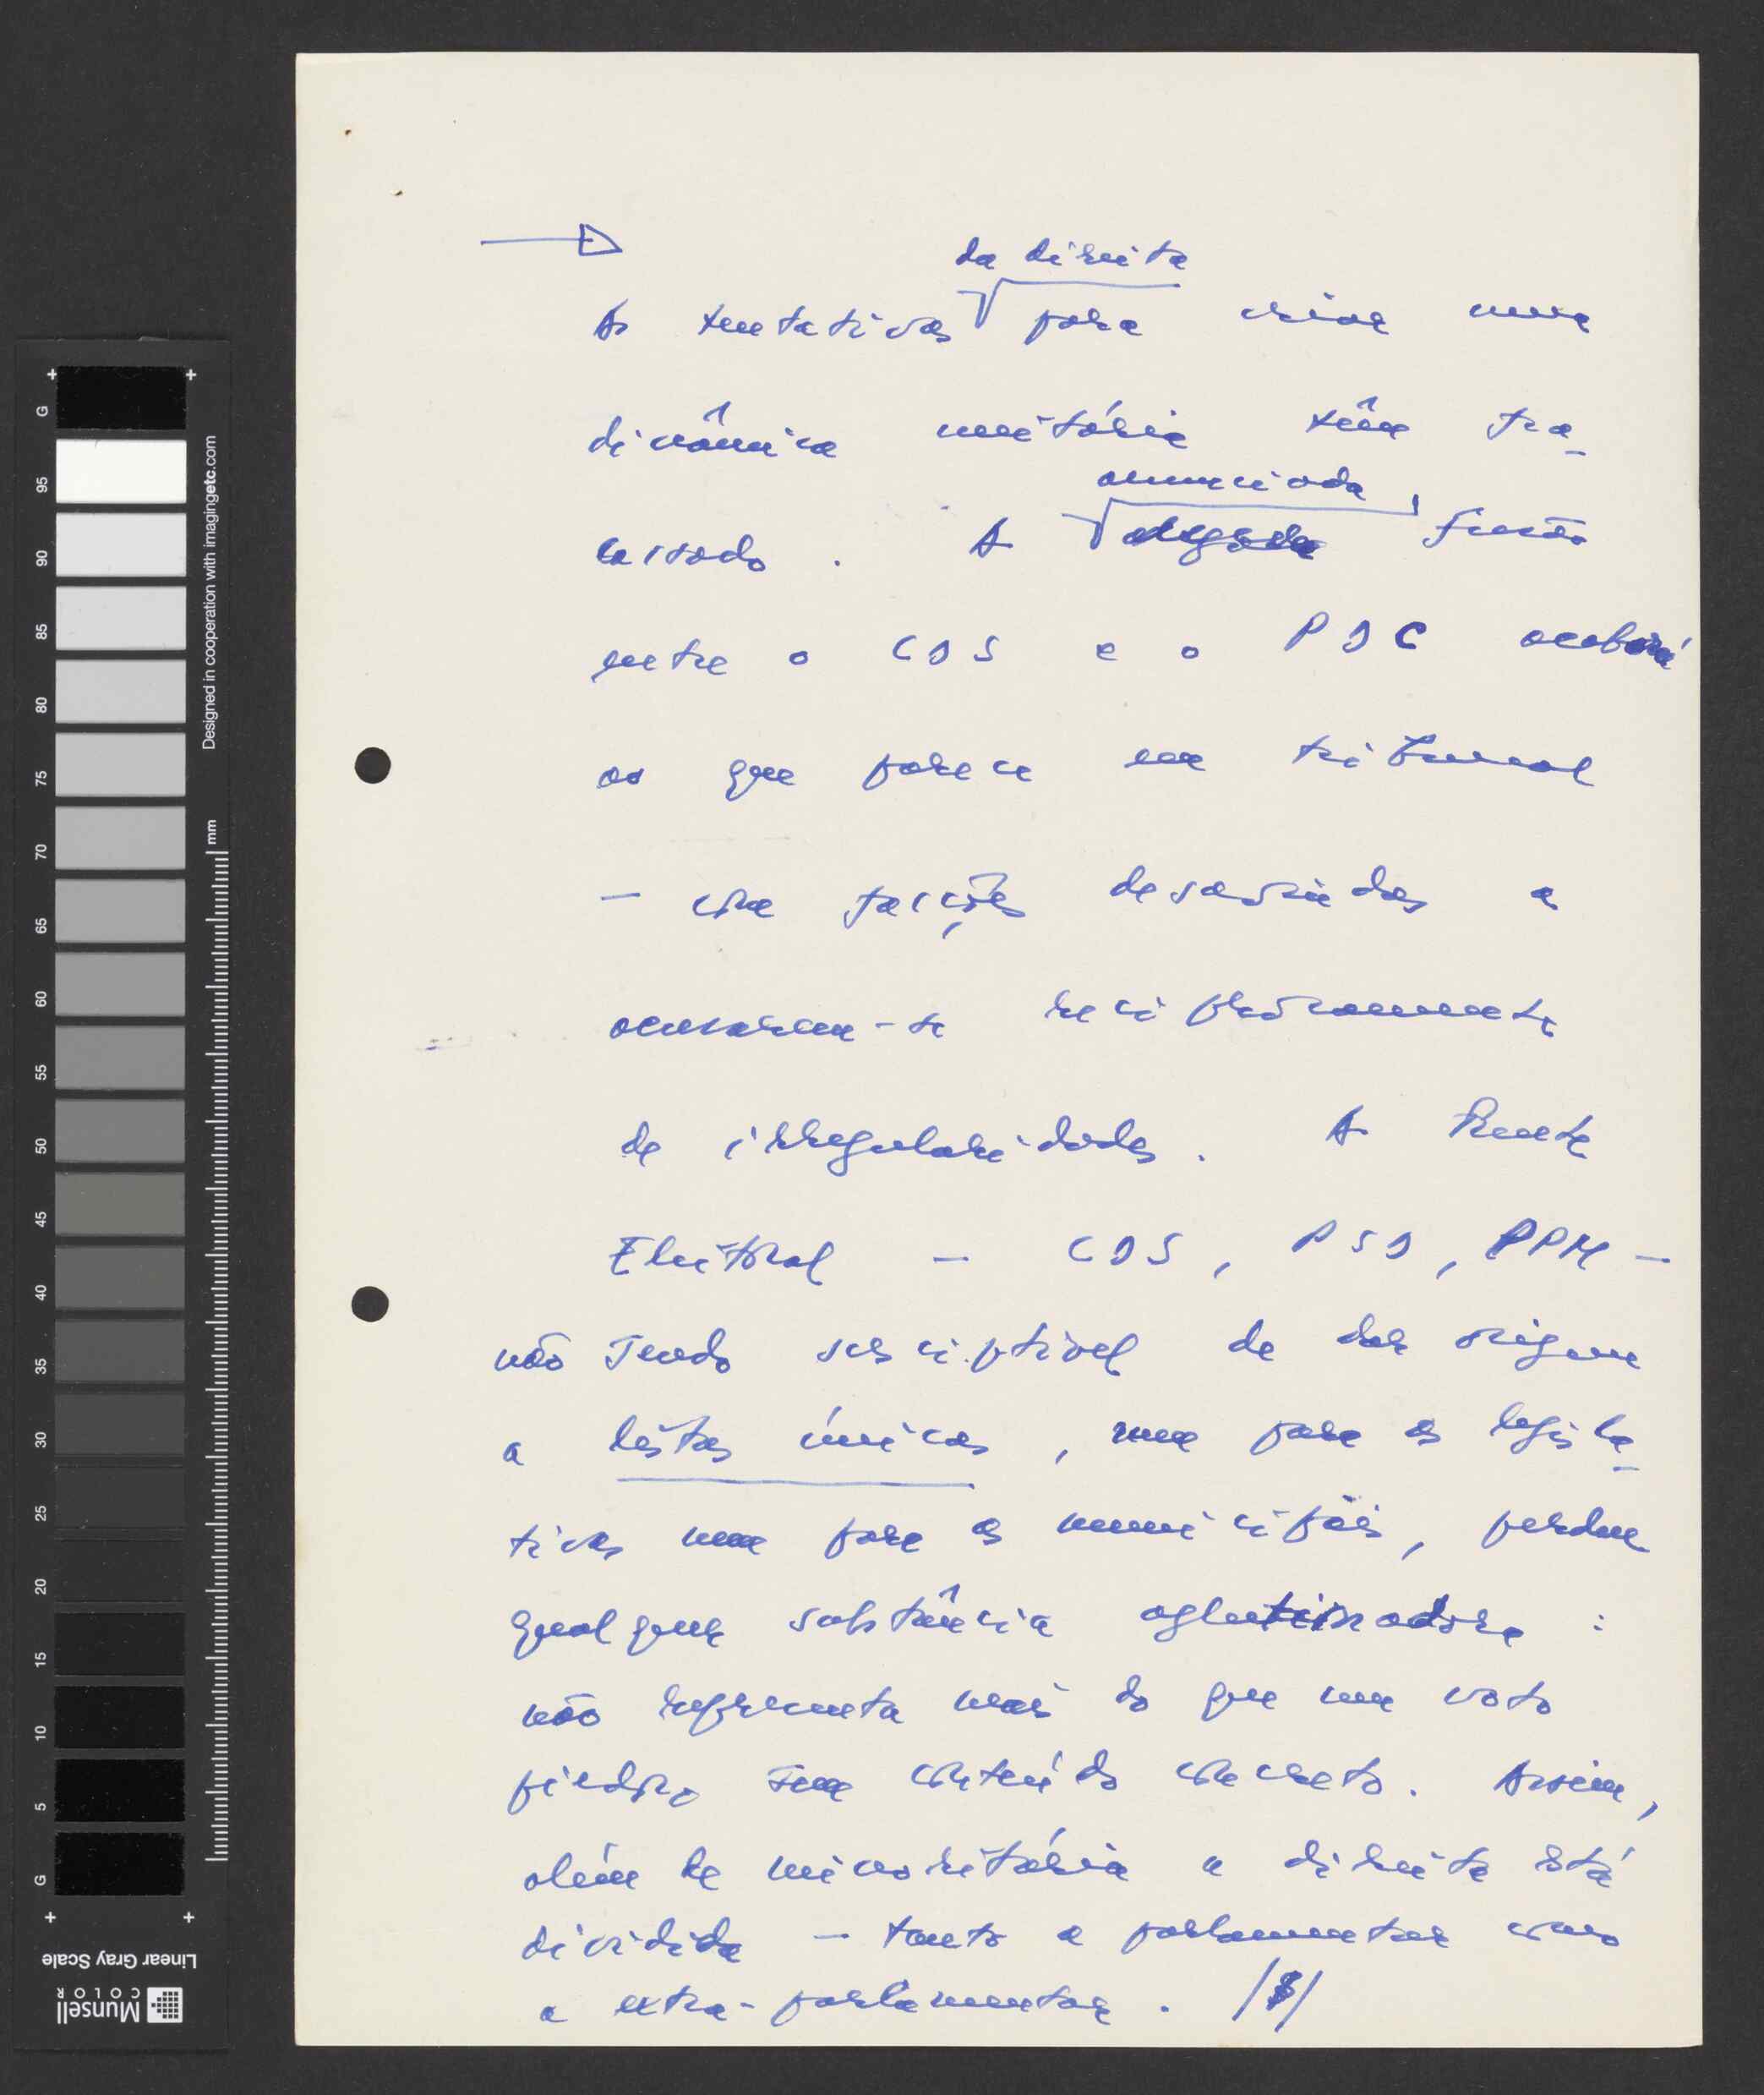 da direita
As tentativas para criar uma
dinâmica unitária têm fra-
cassado. A anunciada fusão
entre o CDS e o PDC acabará
ao que parece em tribunal
- com facções desavindas a
acusarem-se reciprocamente
de irregularidades. A Frente
Eleitoral - CDS, PSD, PPM -
não sendo susceptível de dar origem
a listas únicas, nem para as legisla-
tivas nem para as municipais, perdeu
qualquer substância aglutinadora:
não representa mais do que um voto
piedoso sem conteúdo concreto. Assim,
além de minoritária a direita está
dividida - tanto a parlamentar como
a extra-parlamentar. /$/
G
95
90
85
80
75
70
65
60
55
50
45
40
35
30
25
20
15
10
5
G
mm
Designed in cooperation with imagingetc.com
Linear Gray Scale
Munsell
COLOR